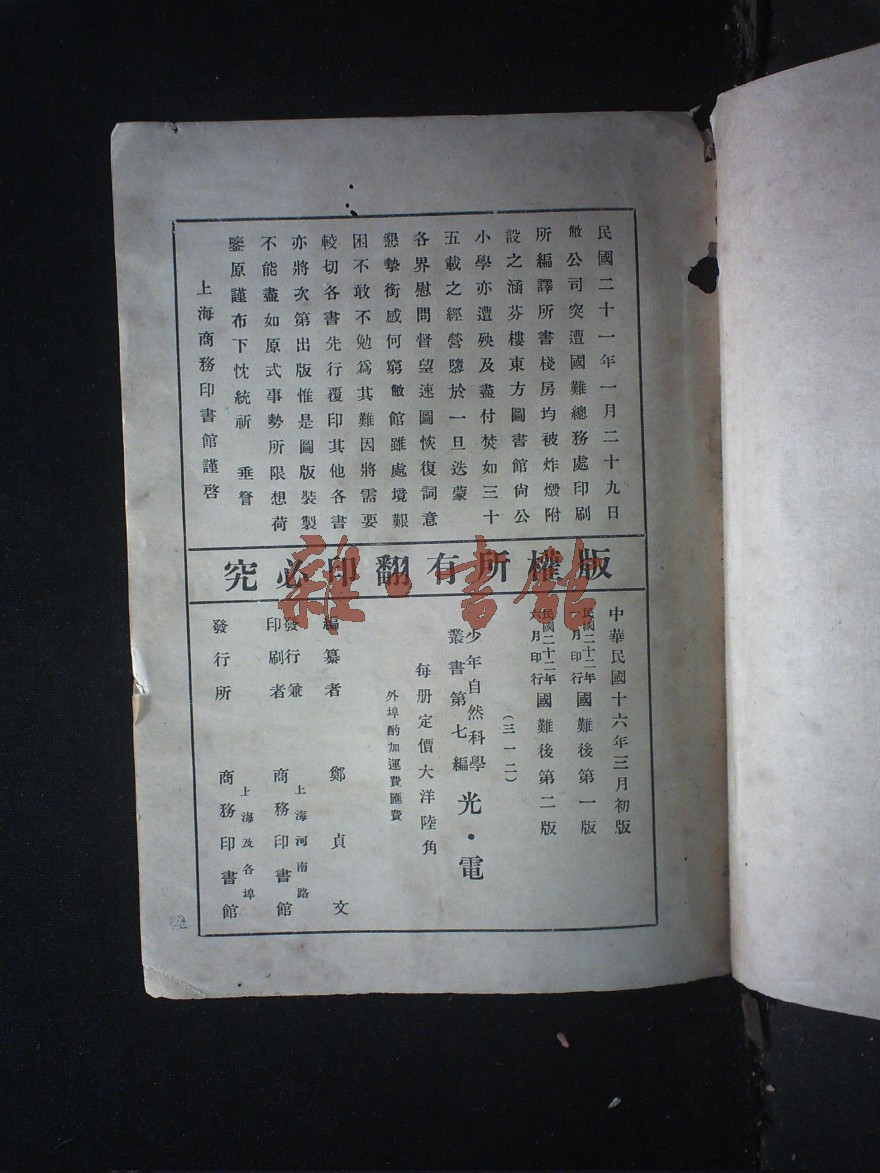 民國二十一年一月二十九日
敝公司突遭國難總務處印刷
所編譯所書棧房均被炸燬附
設之涵芬樓東方圖書館尙公
小學亦遭殃及盡付焚如三十
五載之經營隳於一旦迭蒙
各界慰問督望速圖恢復詞意
懇摯銜感何窮敝館雖處境艱
困不敢不勉爲其難因將需要
較切各書先行覆印其他各書
亦將次第出版惟是圖版裝製
不能盡如原式事勢所限想荷
鑒原謹布下忱統祈 垂詧
上海商務印書館謹啓
版權所有翻印必究
中華民國十六年三月初版
民國二十二年
一月印行
國難後第一版
民國二十二年
六月印行
國難後第二版
(三一二)
少年自然科學
叢書第七編
光·電
每册定價大洋陸角
外埠酌加運費匯費
編纂者 鄭貞文
發行兼
印刷者
上海河南路
商務印書館
發行所
上海及各埠
商務印書館
雜·書館